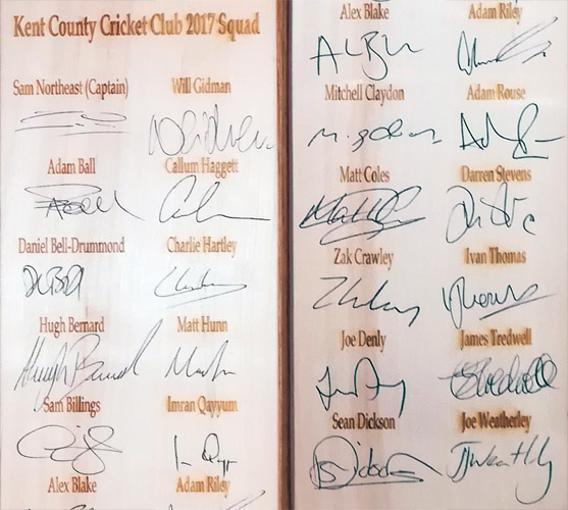 Kent County Cricket Club 2017 Squad
Sam Northeast (Captain) Will Gidman
Adam Ball Callum Haggett
Daniel Bell-Drummond Charlie Hartley
Hugh Bernard Matt Hunn
Sam Billings Imran Qayyum
Alex Blake Adam Riley
Alex Blake Adam Riley
Mitchell Claydon Adam Rouse
Matt Coles Darren Stevens
Zak Crawley Ivan Thomas
Joe Denly James Tredwell
Sean Dickson Joe Weatherley